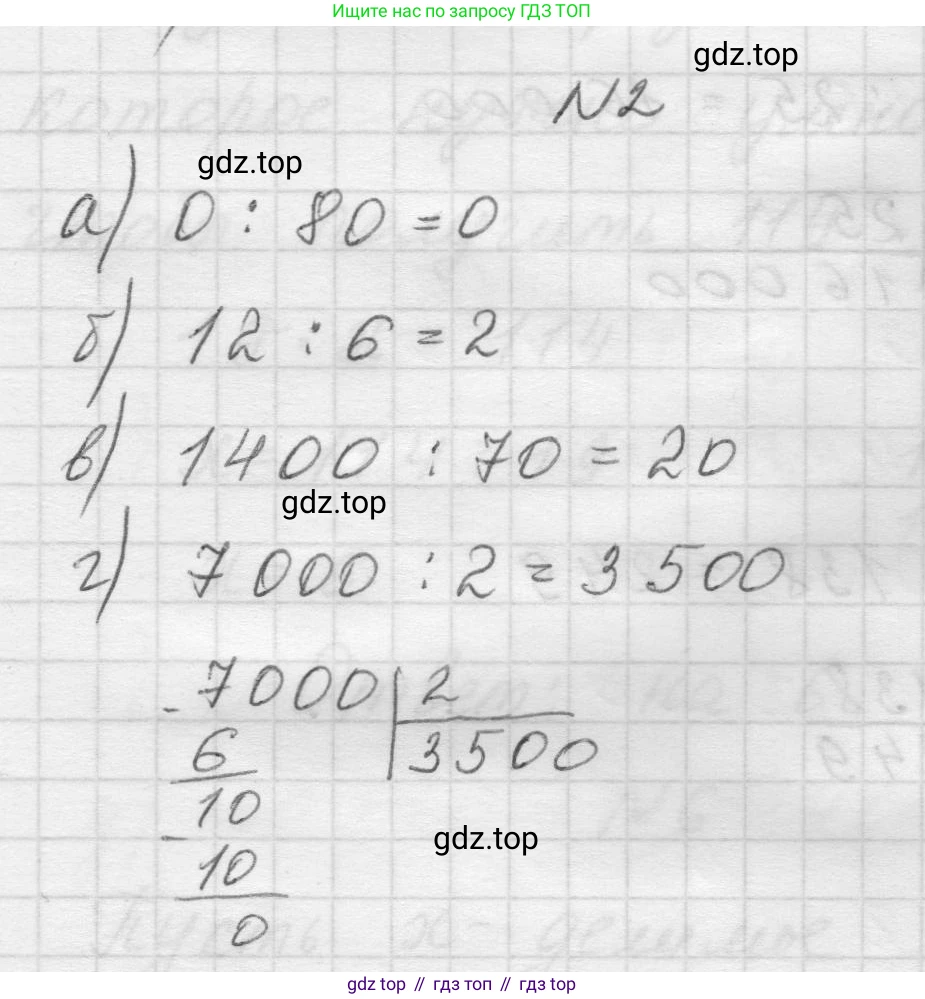 Ищите нас по запросу ГДЗ ТОП
gdz.top
N2
gdz.top
а) 0 : 80 = 0
б) 12 : 6 = 2
в) 1400 : 70 = 20
gdz.top
г) 7000 : 2 = 3500
- 7000 | 2
6 | 3500
10
-
gdz.top
10
0
gdz top // гдз топ // gdz top